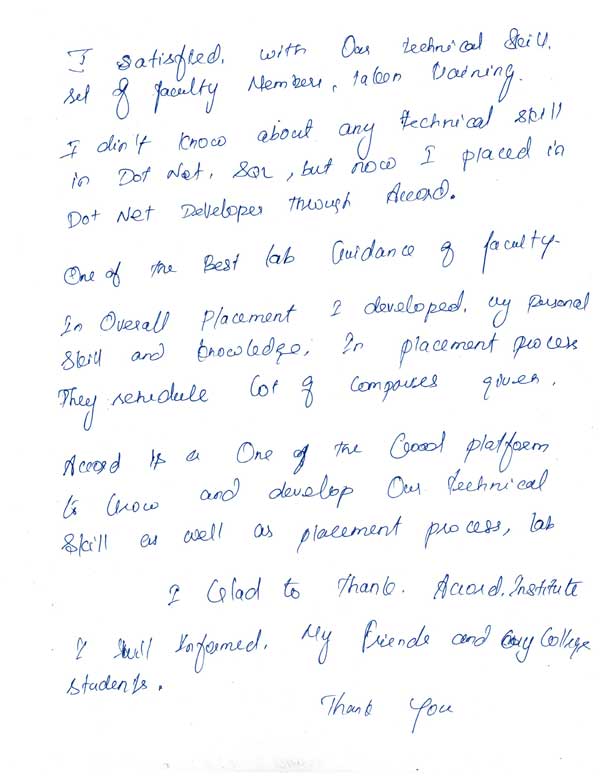 I satisfied. with Our technical Skill.
set of faculty Members, taken training.
I din't know about any technical skill
in Dot Net, SQL, but now I placed in
Dot Net Developer through Accord.
One of the Best lab Guidance of faculty.
In Overall Placement I developed. my personal
Skill and knowledge. In placement process
They schedule Lot of companies given.
Accord is a One of the Good platform
to know and develop Our technical
Skill as well as placement process, lab
I Glad to Thank. Accord. Institute
I will Informed. My Friends and my College
students.
Thank You